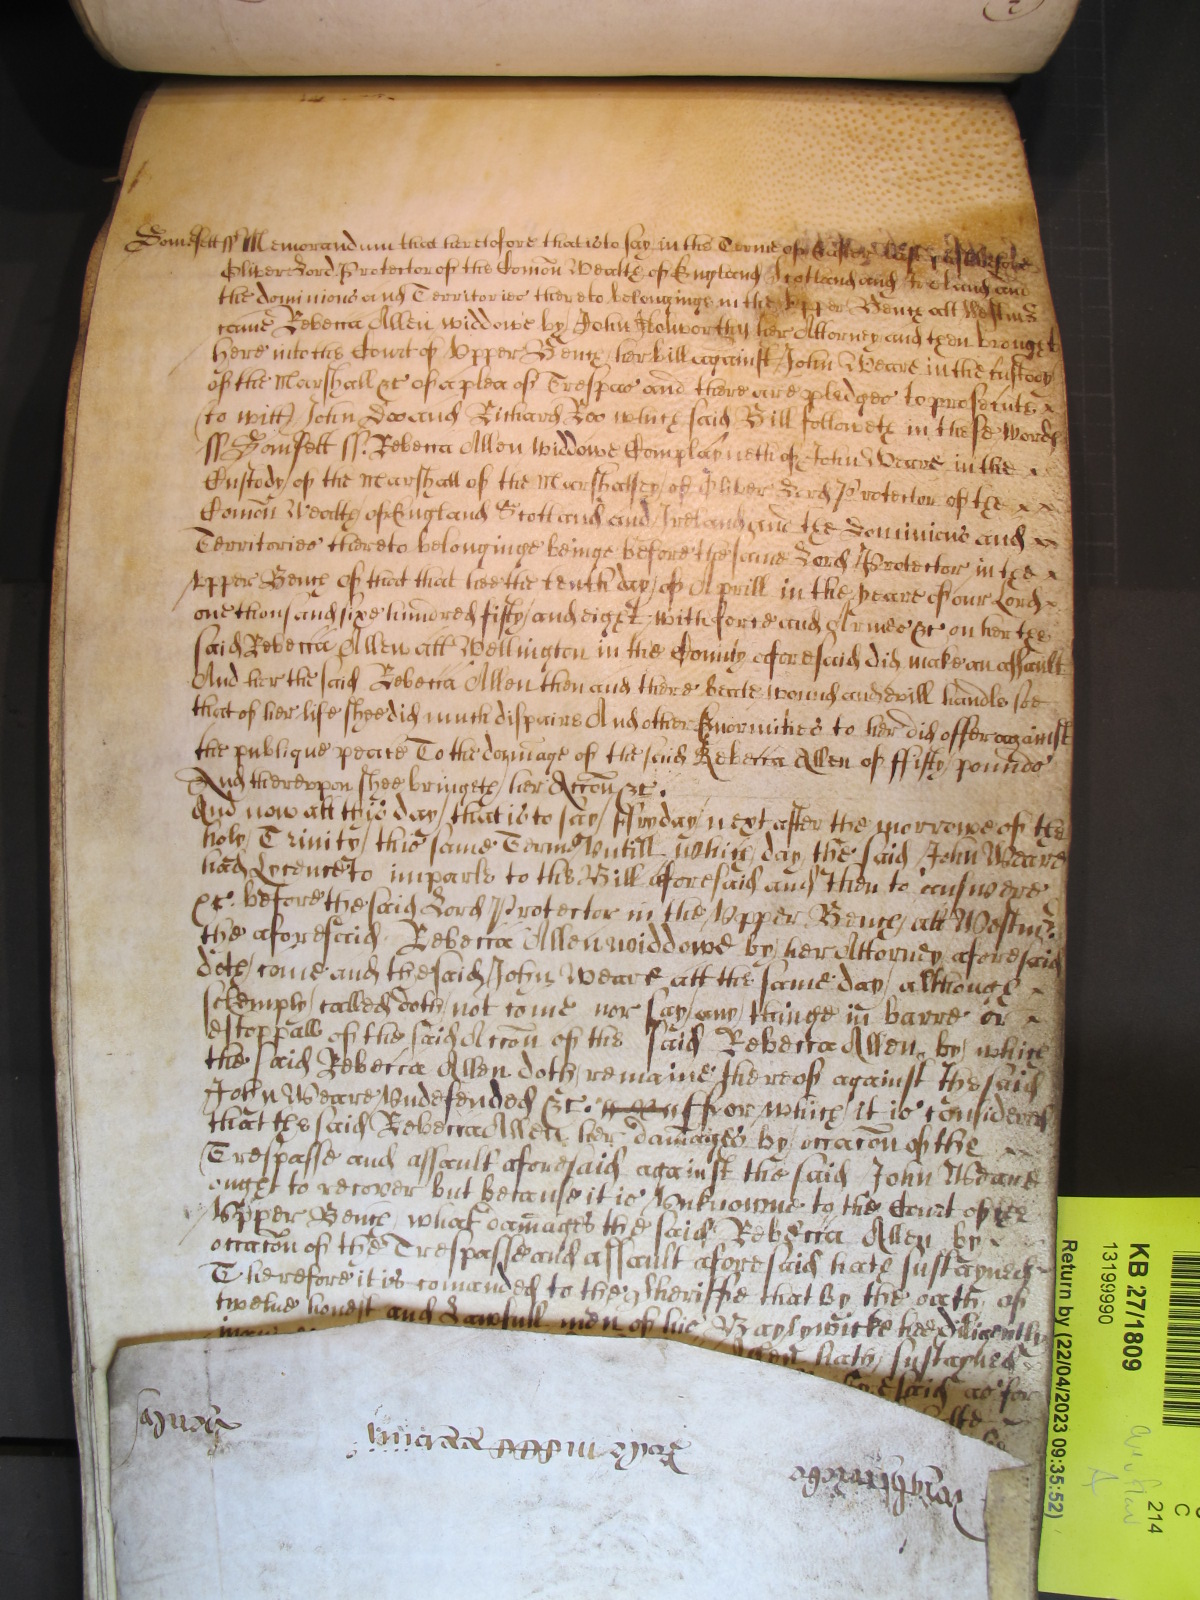 Somsett ss Memorandum that heretofore that is to say in the Terme of Easter last past before
Oliver Lord Protector of the Comon Wealth of England Scotland and Ireland and
the dominions and Territories thereto belonginge in the Upper Bench att Westmr
came Rebecca Allen widdowe by John Holworthy her Attorney and then brought
here into the Court of Upper Bench her bill against John Weare in the Custody
of the Marshall &c of a plea of Trespas and there are pledges to prosecute
(to witt) John Doo and Richard Roo which said Bill followeth in these words
ss Somsett ss. Rebecca Allen widdowe Complayneth of John Weare in the
Custody of the Marshall of the Marshalsey of Oliver Lord Protector of the
Comon Wealth of England Scotland and Ireland and the Dominions and
Territories thereto belonginge beinge before the same Lord Protector in the
Upper Bench of that that hee the tenth day of Aprill in the yeare of our Lord
one thousand sixe hundred fifty and eight with force and Armes &c on her the
said Rebecca Allen att Wellington in the County aforesaid did make an assault
And her the said Rebecca Allen then and there beate wound and evill handle soe
that of her life shee did much dispaire And other Enormities to her did offer against
the publique peace To the damage of the said Rebecca Allen of ffifty pounds
And thereupon shee bringeth her Accon &c.
And now att this day that is to say ffryday next after the morrowe of the
holy Trinity this same Terme Untill which day the said John Weare
had Lycence to imparle to the Bill aforesaid and then to answere
&c. before the said Lord Protector in the Upper Bench att Westmr.
the aforesaid Rebecca Allen widdowe by her Attorney aforesaid
doth come and the said John Weare att the same day although
solemply called doth not come nor say any thinge in barre or
estoppall of the said Accon of the said Rebecca Allen by which
the said Rebecca Allen doth remaine thereof against the said
John Weare Undefended &c. ffor which it is considered
that the said Rebecca Allen her damages by occacon of the
Trespasse and assault aforesaid against the said John Weare
ought to recover but because it is Unknowne to the Court of the
Upper Bench what damages the said Rebecca Allen by
occacon of the Trespasse and assault aforesaid hath sustayned
Therefore it is comanded to the Sheriffe that by the oath of
twelve honest and Lawfull men of his Baylywicke hee diligently
Allen hath sustayned
aforesaid as for
KB 27/1809
13199990
Return by (22/04/2023 09:35:52)
214
C